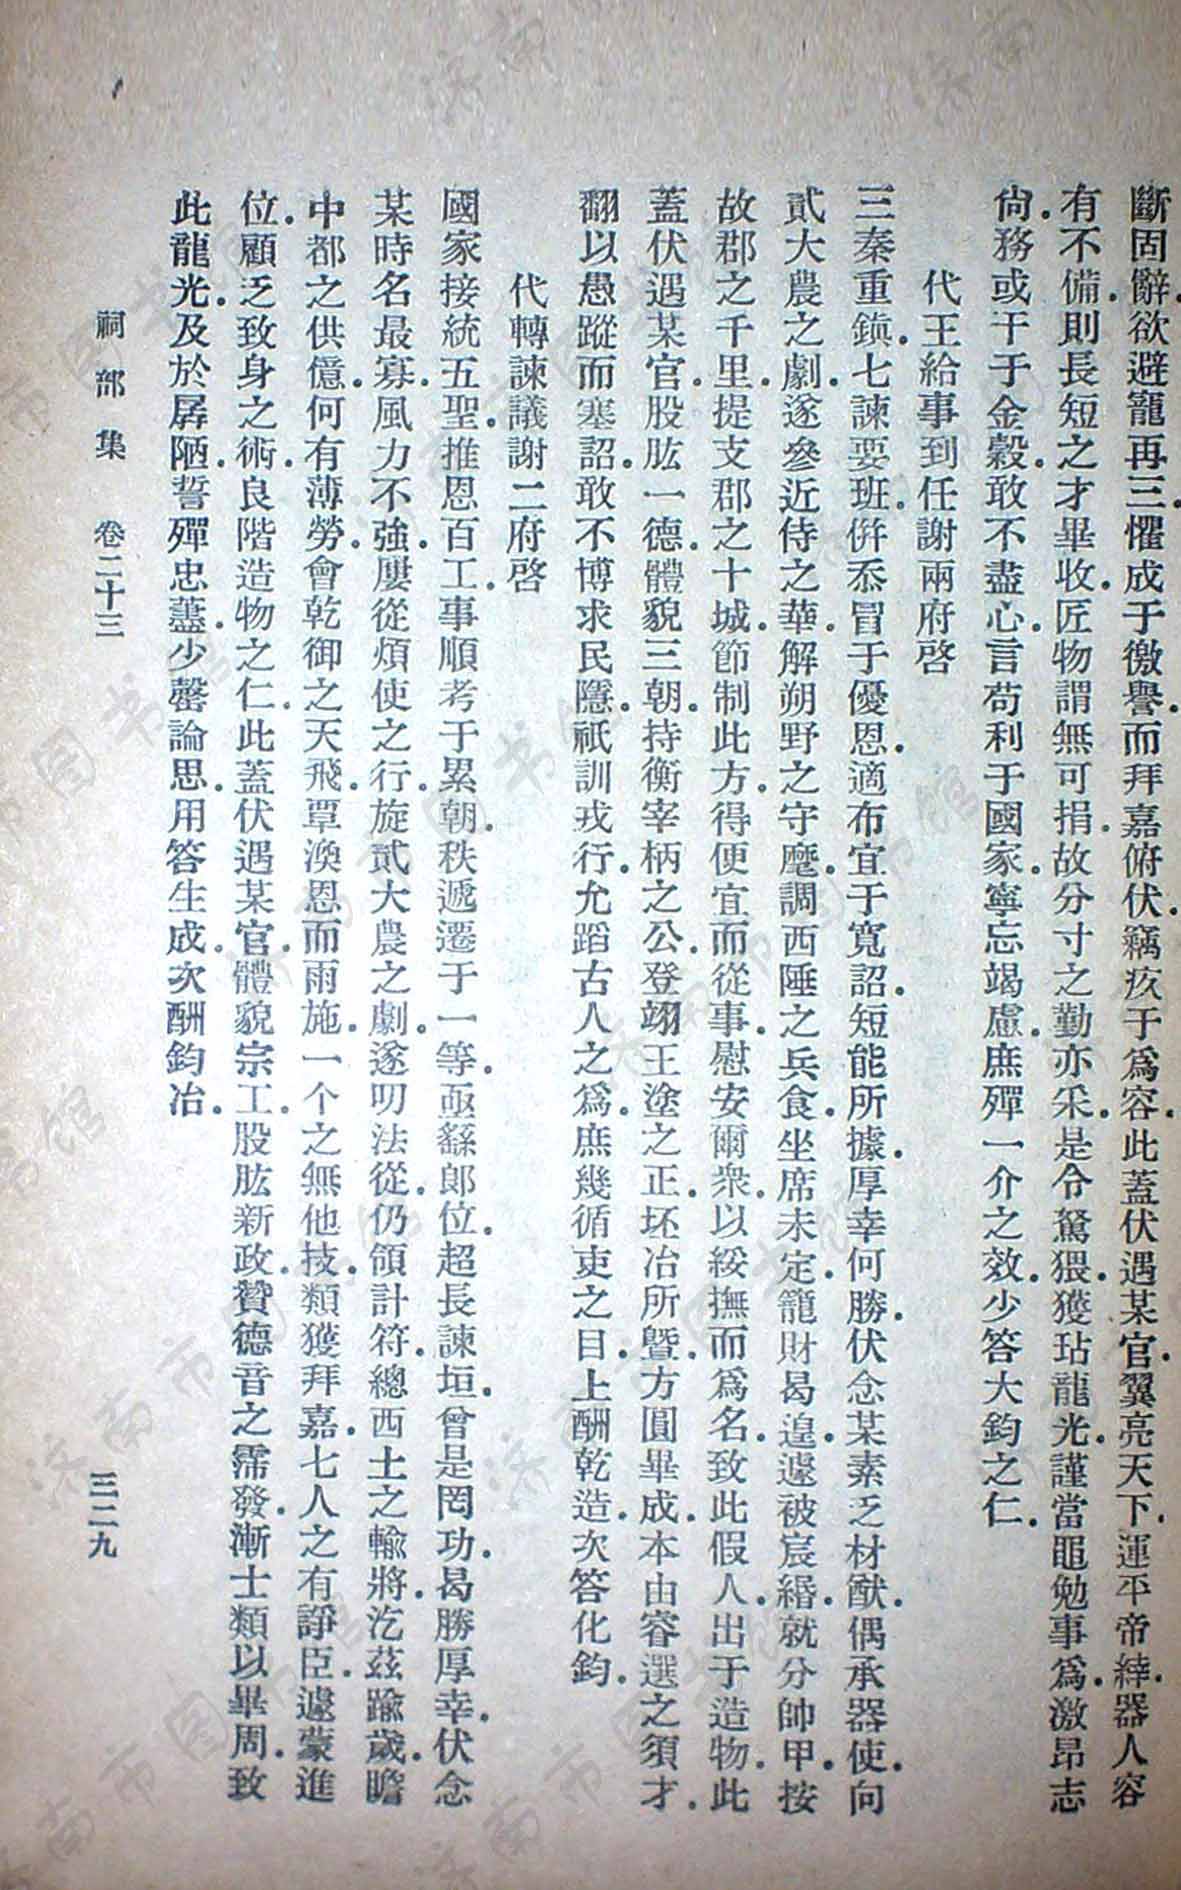 斷固辭欲避寵再三.懼成于徼譽.而拜嘉俯伏.竊疚于爲容.此蓋伏遇某官.翼亮天下.運平帝縡.器人容
有不備.則長短之才畢收.匠物謂無可捐.故分寸之勤亦采.是令駑猥.獲玷龍光.謹當黽勉事爲.激昂志
尙.務或干于金穀.敢不盡心.言苟利于國家.寧忘竭慮.庶殫一介之效.少答大鈞之仁.
代王給事到任謝兩府啓
三秦重鎭.七諫要班.倂忝冒于優恩.適布宜于寬詔.短能所據.厚幸何勝.伏念某素乏材猷.偶承器使.向
貳大農之劇.遂參近侍之華.解朔野之守麾.調西陲之兵食.坐席未定.籠財曷遑.遽被宸緡.就分帥甲.按
故郡之千里.提支郡之十城.節制此方.得便宜而從事.慰安爾衆.以綏撫而爲名.致此假人.出于造物.此
蓋伏遇某官.股肱一德.體貌三朝.持衡宰柄之公.登翊王塗之正.坯冶所曁.方圓畢成.本由睿選之須才.
翻以愚蹤而塞詔.敢不博求民隱.祇訓戎行.允蹈古人之爲.庶幾循吏之目.上酬乾造.次答化鈞.
代轉諫議謝二府啓
國家接統五聖.推恩百工.事順考于累朝.秩遞遷于一等.亟繇郞位.超長諫垣.曾是罔功.曷勝厚幸.伏念
某時名最寡.風力不強.屢從煩使之行.旋貳大農之劇.遂叨法從.仍領計符.總西土之輸將.汔茲踰歲.瞻
中都之供億.何有薄勞.會乾御之天飛.覃渙恩而雨施.一个之無他技.類獲拜嘉.七人之有諍臣.遽蒙進
位.顧乏致身之術.良階造物之仁.此蓋伏遇某官.體貌宗工.股肱新政.贊德音之霈發.漸士類以畢周.致
此龍光.及於孱陋.誓殫忠藎.少罄論思.用答生成.次酬鈞冶.
祠部集 卷二十三 三二九